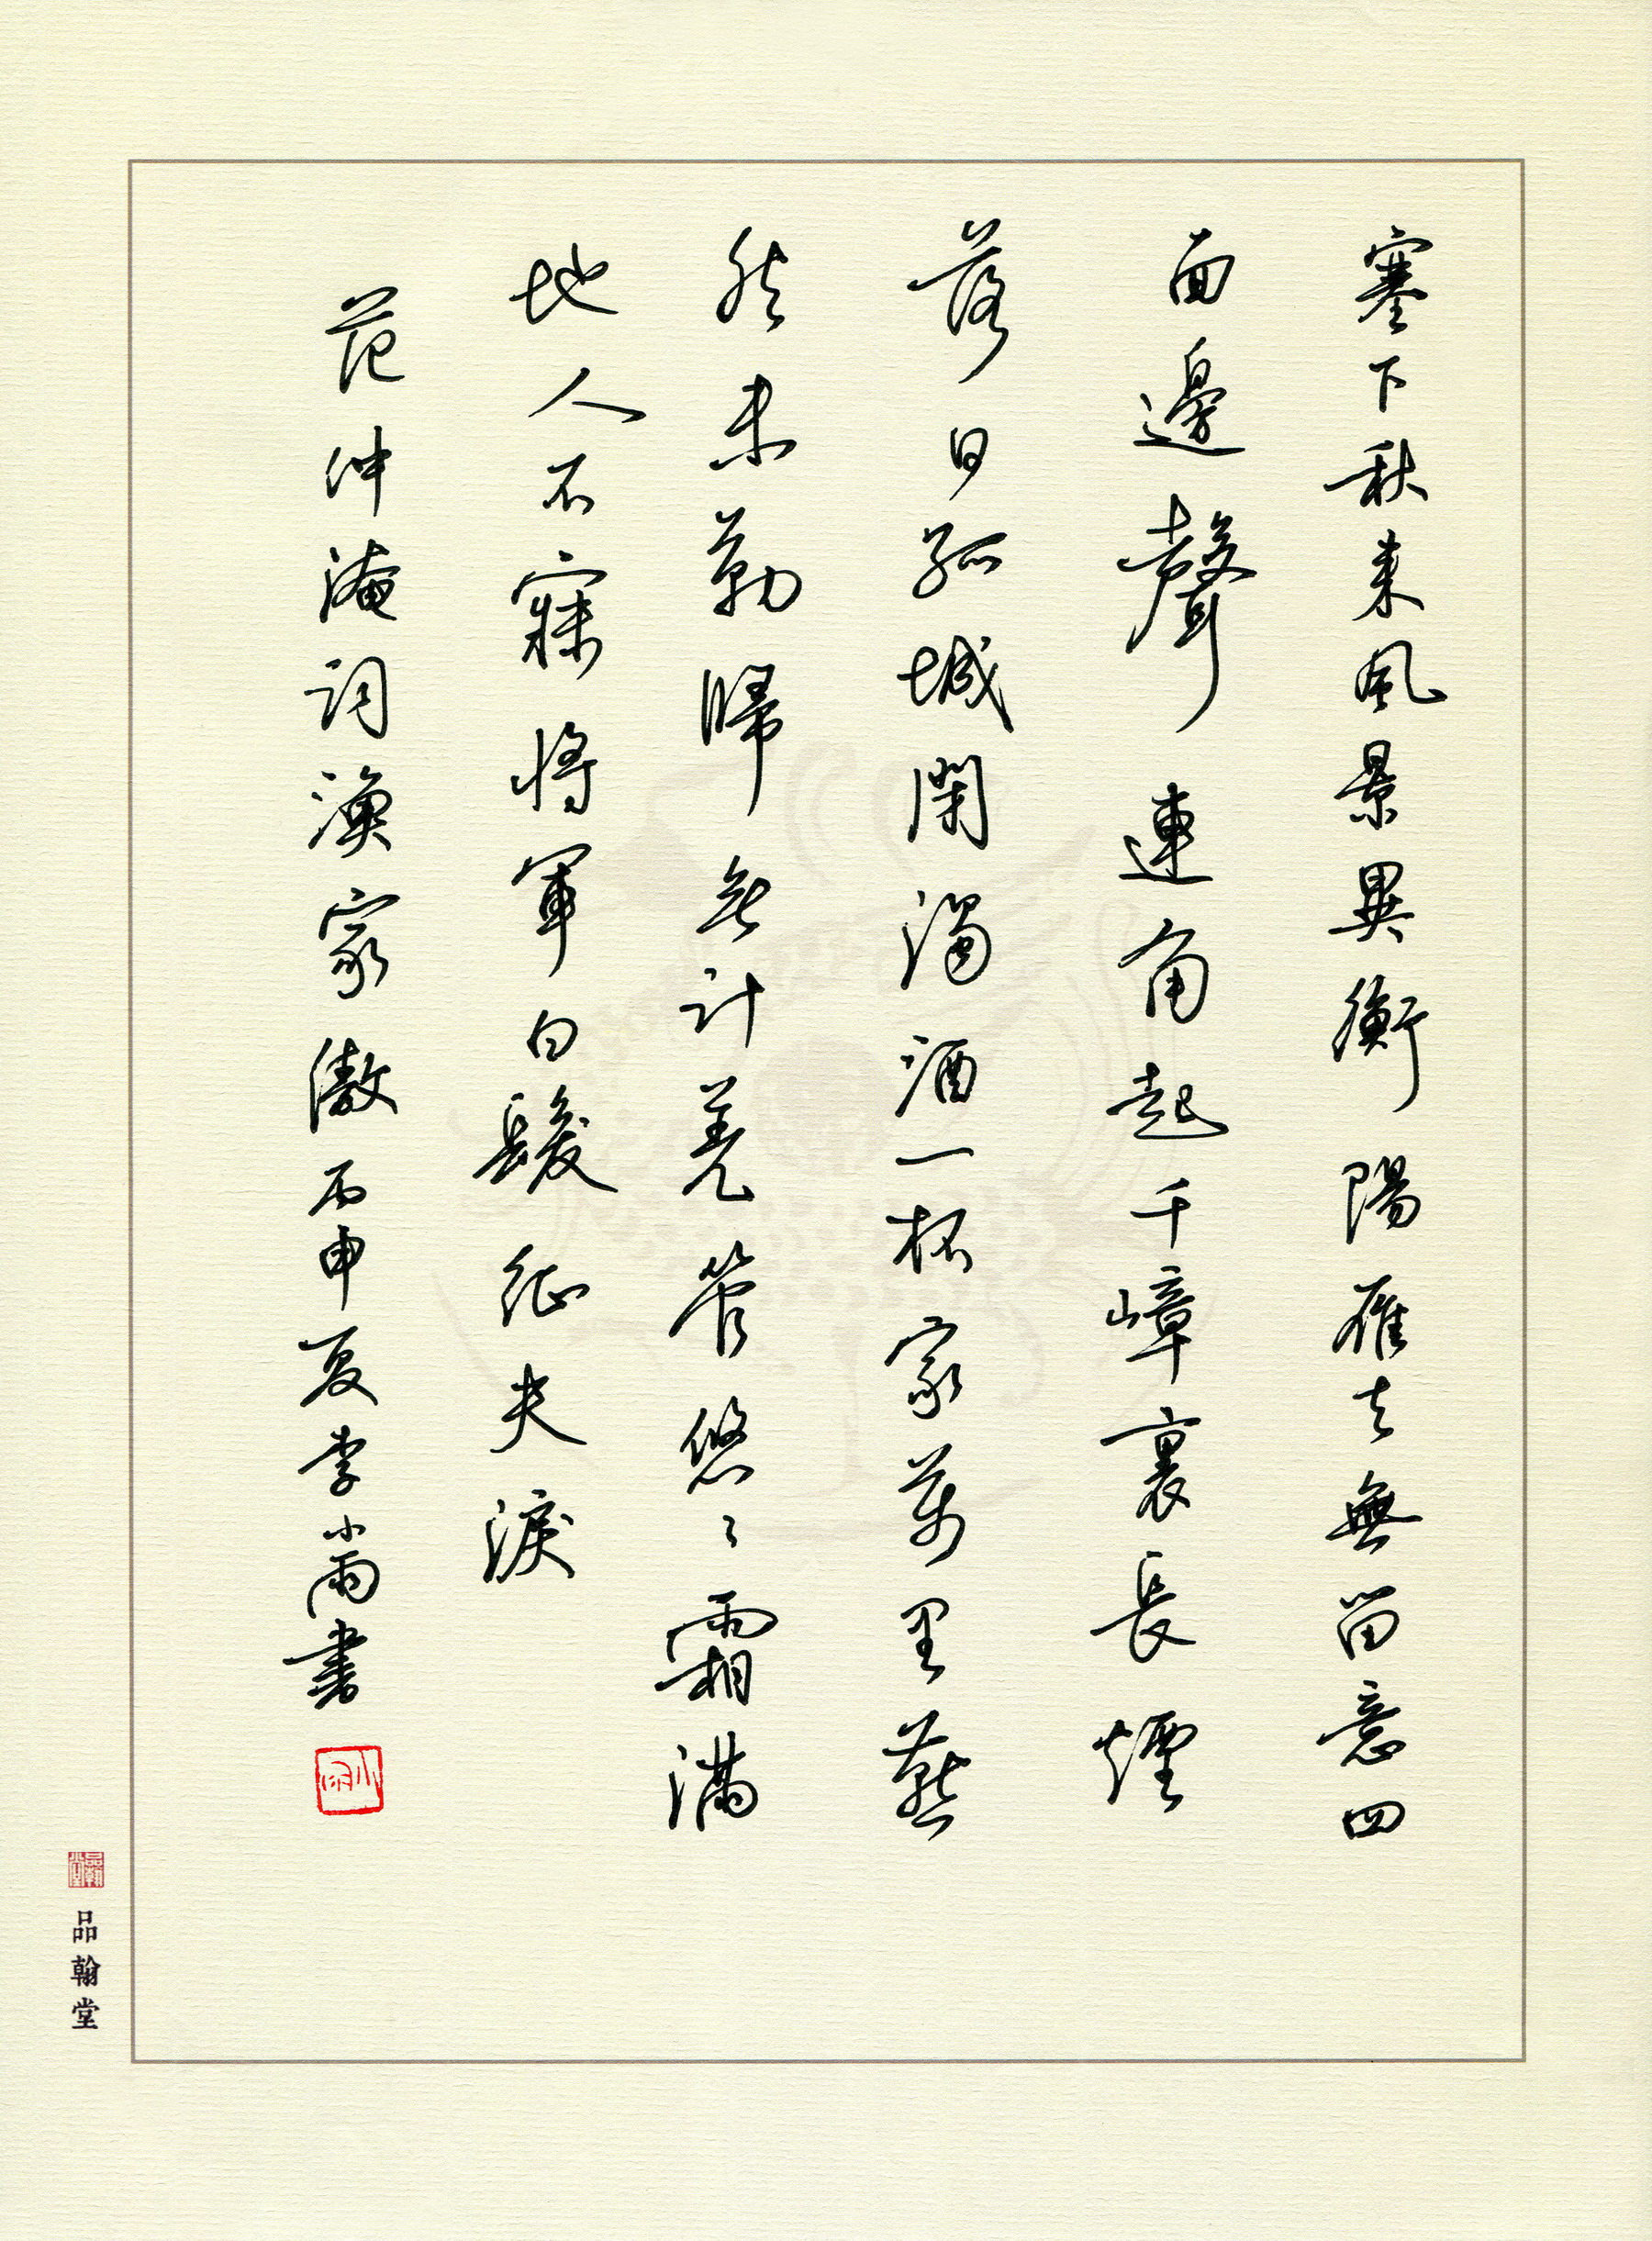 塞下秋来風景異衡陽雁去無留意四
面邊聲連角起千嶂裏長煙
落日孤城閉濁酒一杯家萬里燕
然未勒歸無計羌管悠〻霜滿
地人不寐將軍白髮征夫淚
范仲淹词漁家傲丙申夏李小雨書
品翰堂